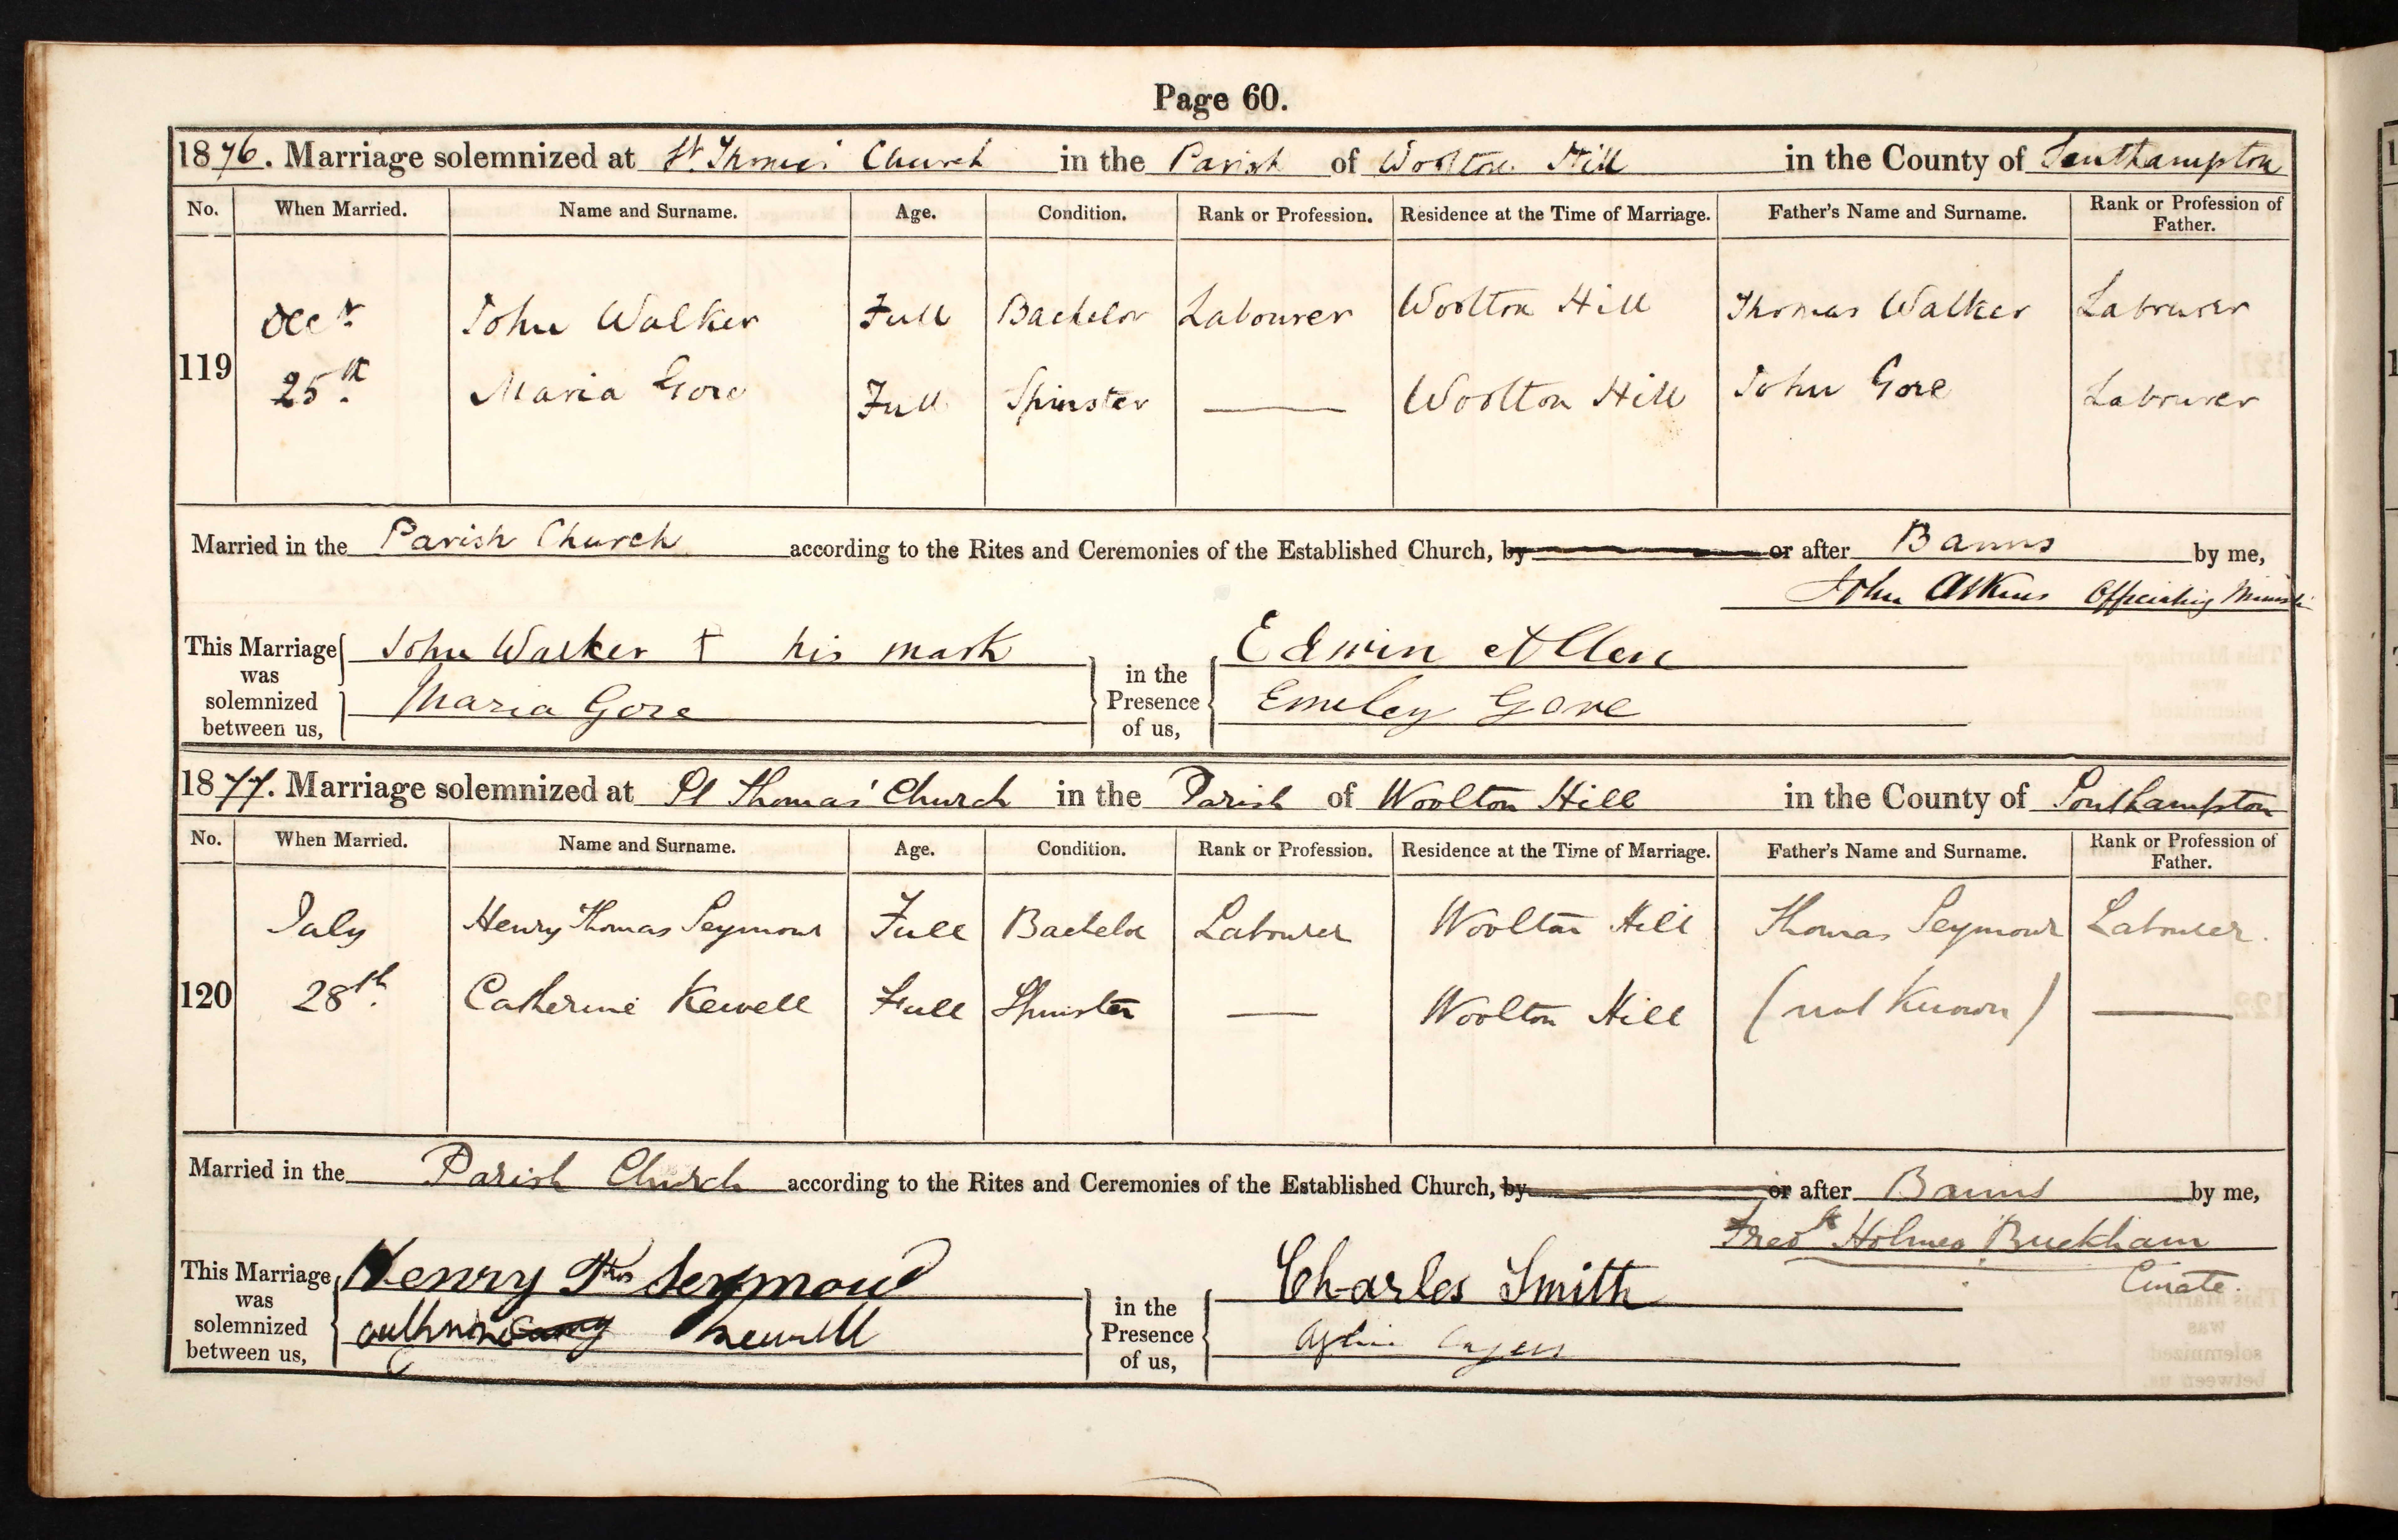 Page 60.
1876. Marriage solemnized at St. Thomas' Church in the Parish of Woolton Hill in the County of Southampton
No. When Married. Name and Surname. Age. Condition. Rank or Profession. Residence at the Time of Marriage. Father's Name and Surname. Rank or Profession of Father.
Decr John Walker Full Bachelor Labourer Woolton Hill Thomas Walker Labourer
119 25th Maria Gore Full Spinster Woolton Hill John Gore Labourer
Married in the Parish Church according to the Rites and Ceremonies of the Established Church, by or after Banns by me,
John Atkins Officiating Minister
This Marriage was solemnized between us, John Walker + his mark in the Presence of us, Edwin Allen
Maria Gore Emeley Gore
1877. Marriage solemnized at St Thomas' Church in the Parish of Woolton Hill in the County of Southampton
No. When Married. Name and Surname. Age. Condition. Rank or Profession. Residence at the Time of Marriage. Father's Name and Surname. Rank or Profession of Father.
July Henry Thomas Seymour Full Bachelor Labourer Woolton Hill Thomas Seymour Labourer.
120 28th Catherine Kewell Full Spinster Woolton Hill (not known)
Married in the Parish Church according to the Rites and Ceremonies of the Established Church, by or after Banns by me,
Fredk Holmes Buckham
Curate.
This Marriage was solemnized between us, Henry Thos Seymour in the Presence of us, Charles Smith
Kewell